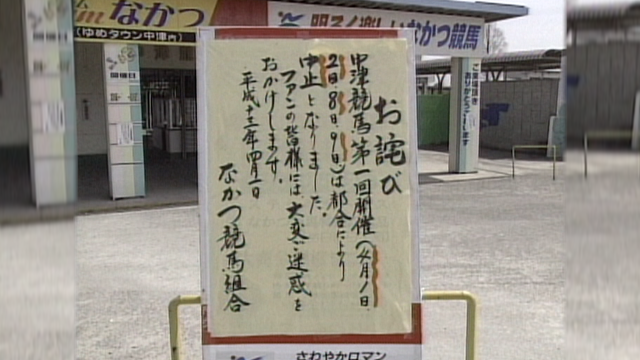 なかつ
(ゆめタウン中津内)
明るく楽しいなかつ競馬
開催日
ご来場頂き
ありがとうございます
お詫び
中津競馬第一回開催(4月1日、
2日、8日、9日、)は都合により
中止となりました。
ファンの皆様には大変ご迷惑を
おかけします。
平成十三年四月一日
なかつ競馬組合
さわやかロマン